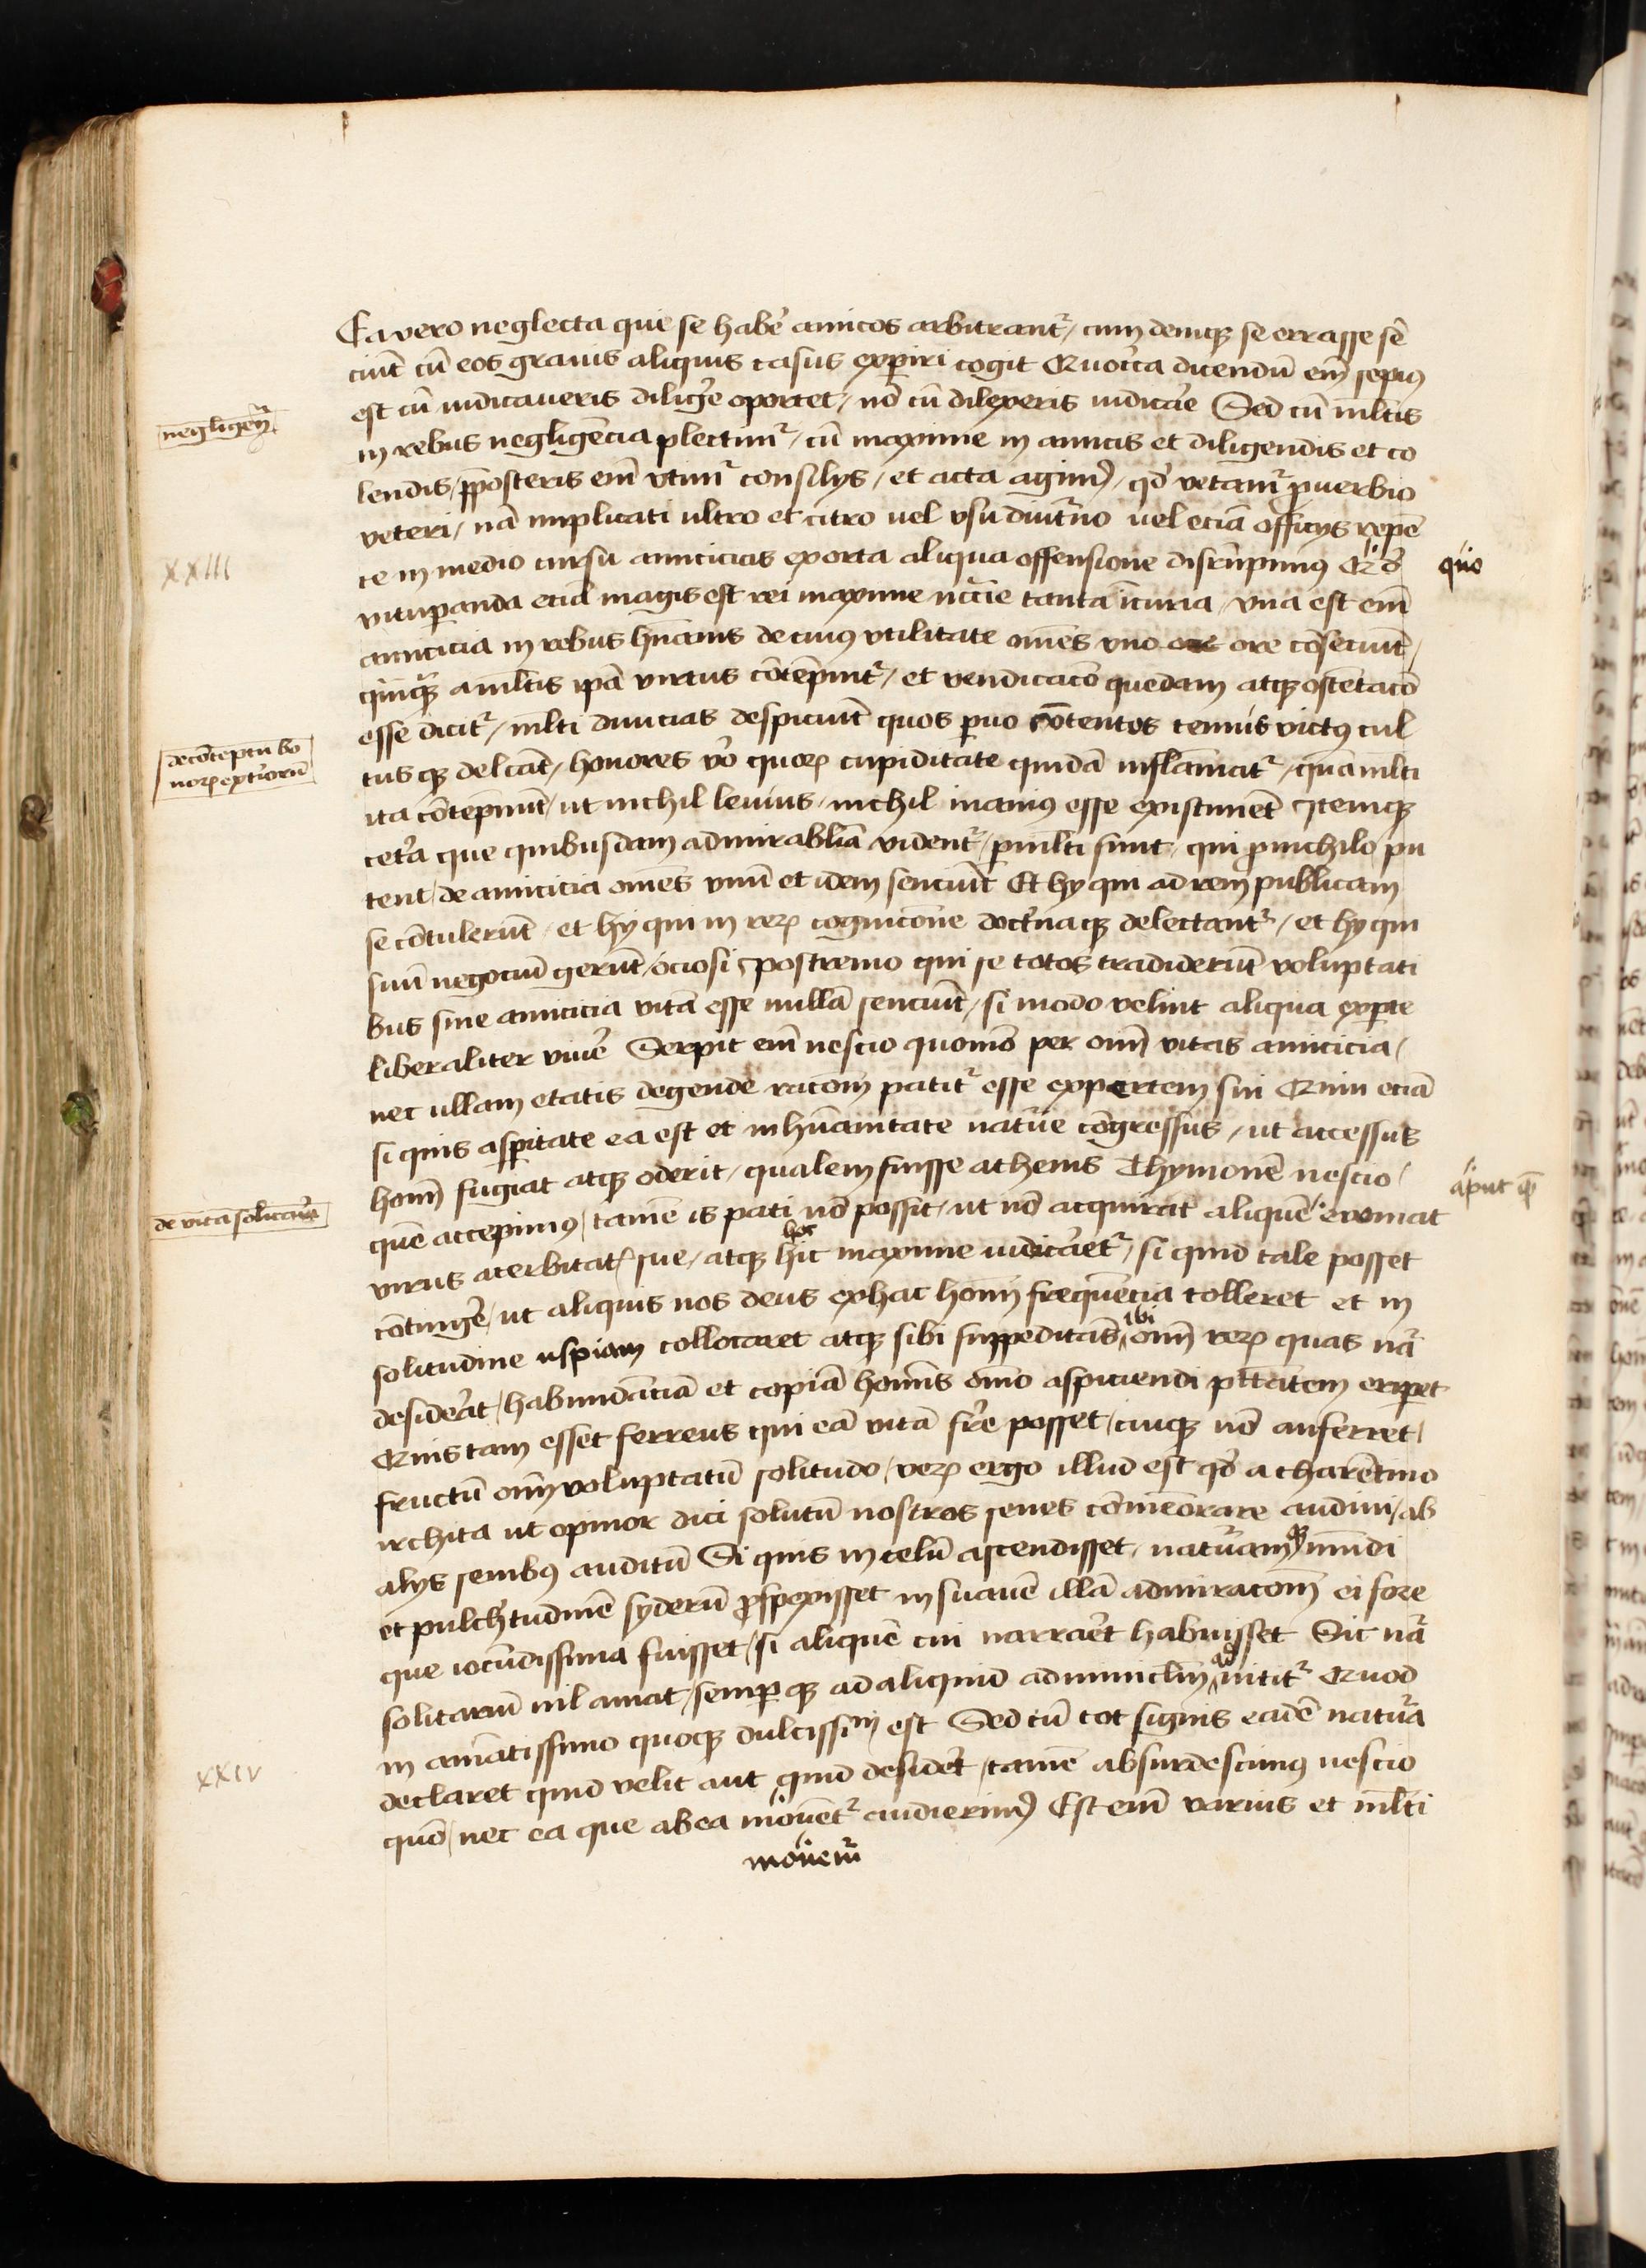 Ea vero neglecta que se habe᷑ amicos arbitrant᷑ / cum demiqꝫ se errasse sē
ciūt cū eos grauis aliquis casus exꝑiri cogit Quocᷓca dicendū em̄ sepiꝰ
est cū iudicaueris dilige᷑ oportet / nō cū dilexeris iudica᷑e Sed cū ml̄tis
negligen᷑
in rebus negligēcia plectim᷑ / cū maxime in amicis et diligendis et co
lendis / p̄posteris em̄ vtim᷑ consilijs / et acta agimꝰ / qd̓ vetam᷑ ꝓuerbio
veteri / nā implicati ultro et citro uel vsu diut᷑no uel eciā officijs repē
XXIII
te in medio cursu amicicias exorta aliqua offensione disrūpimꝰ Qd̓
quo
vituꝑanda eciā magis est rei maxime necc̄ie tanta īcuria / vna est em̄
amicicia in rebus hūanis de cuiꝰ vtilitate oēs vno ore ore cōseciūt /
qͣmqͣꝫ a ml̄tis ip̄a virtus cōtēpnit᷑ / et vendicacō quedam atqꝫ ostētacō
esse dicit᷑ / ml̄ti diuicias despiciūt quos ꝑuo cōtentos tenuis victꝰ cul
de cōteptu bo
noꝝ ext᷑ioꝝ
tusqꝫ delcāt / honores vō quoꝝ cupiditate quidā inflāmat᷑ / quā ml̄ti
ita cōtēpnūt / ut nichil leuius / nichil inaniꝰ esse existimēt Itemqꝫ
cet᷑a que quibusdam admirabl̄ia vident᷑ / ꝑml̄ti sunt / qui ꝓ nichilo pu
tent / de amicicia oēs vnū et idem senciūt Et hij qui ad rem publicam
se cōtulerūt / et hij qui in reꝝ cognicōne doct᷑naqꝫ delectant᷑ / et hij qui
suū negociū gerūt / ociosi / postremo qui se totos tradiderūt voluptati
bus sine amicicia vitā esse nullā senciūt / si modo velint aliqua exꝑte
liberaliter viue᷑ Serpit em̄ nescio quomō per om̄ vitas amicicia /
nec ullam etatis degende racōm patit᷑ esse expertem sui Quin eciā
si quis asꝑitate ea est et inhūanitate natu᷑e cōgressus / ut accessus
hom̄ fugiat atqꝫ oderit / qualem fuisse athenis Thymonē nescio /
aput qͣꝫ
de vita solitaria
quē accepimꝰ / tamē is pati nō possit / ut nō acquirat aliquē euomat
virus acerbitat᷑ sue / atqꝫ hic maxime iudica᷑et᷑ / si quid tale posset
hoc
cōtinge᷑ / ut aliquis nos deus ex hac hom̄ frequēcia tolleret et in
solitudine uspiam collocaret atqꝫ sibi suppeditās om̄ reꝝ quas na᷑
ibi
deside᷑at / habundāciā et copiā homīs om̄o aspiciendi ptt̄atem eriꝑet
Quis tam esset ferreus qui eā vitā fr̄e posset / cuiqꝫ nō auferret /
fructū om̄ voluptatū solitudo / veꝝ ergo illud est qd̓ a tharētino
archita ut opinor dici solitū nostros senes cōmeōrare audiui / ab
alijs senibꝰ auditū Si quis in celū ascendisset / natu᷑amqꝫ mūdi
et pulch᷑tudinē syderū ꝓspexisset insuauē illā admiracōm ei fore
que iocūdissima fuisset / si aliquē cui narra᷑et habuisset Sic na᷑
solitariū nil amat / semꝑqꝫ ad aliquid adminicl̄m nitit᷑ Quod
ad
in amātissimo quoqꝫ dulcissim̄ est Sed cū tot signis eadē natu᷑a
XXIV
declaret quid velit aut quid deside᷑t / tamē absurdescimꝰ nescio
quō / nec ea que ab ea mouēt᷑ audierimꝰ Est em̄ varius et ml̄ti
monem᷑